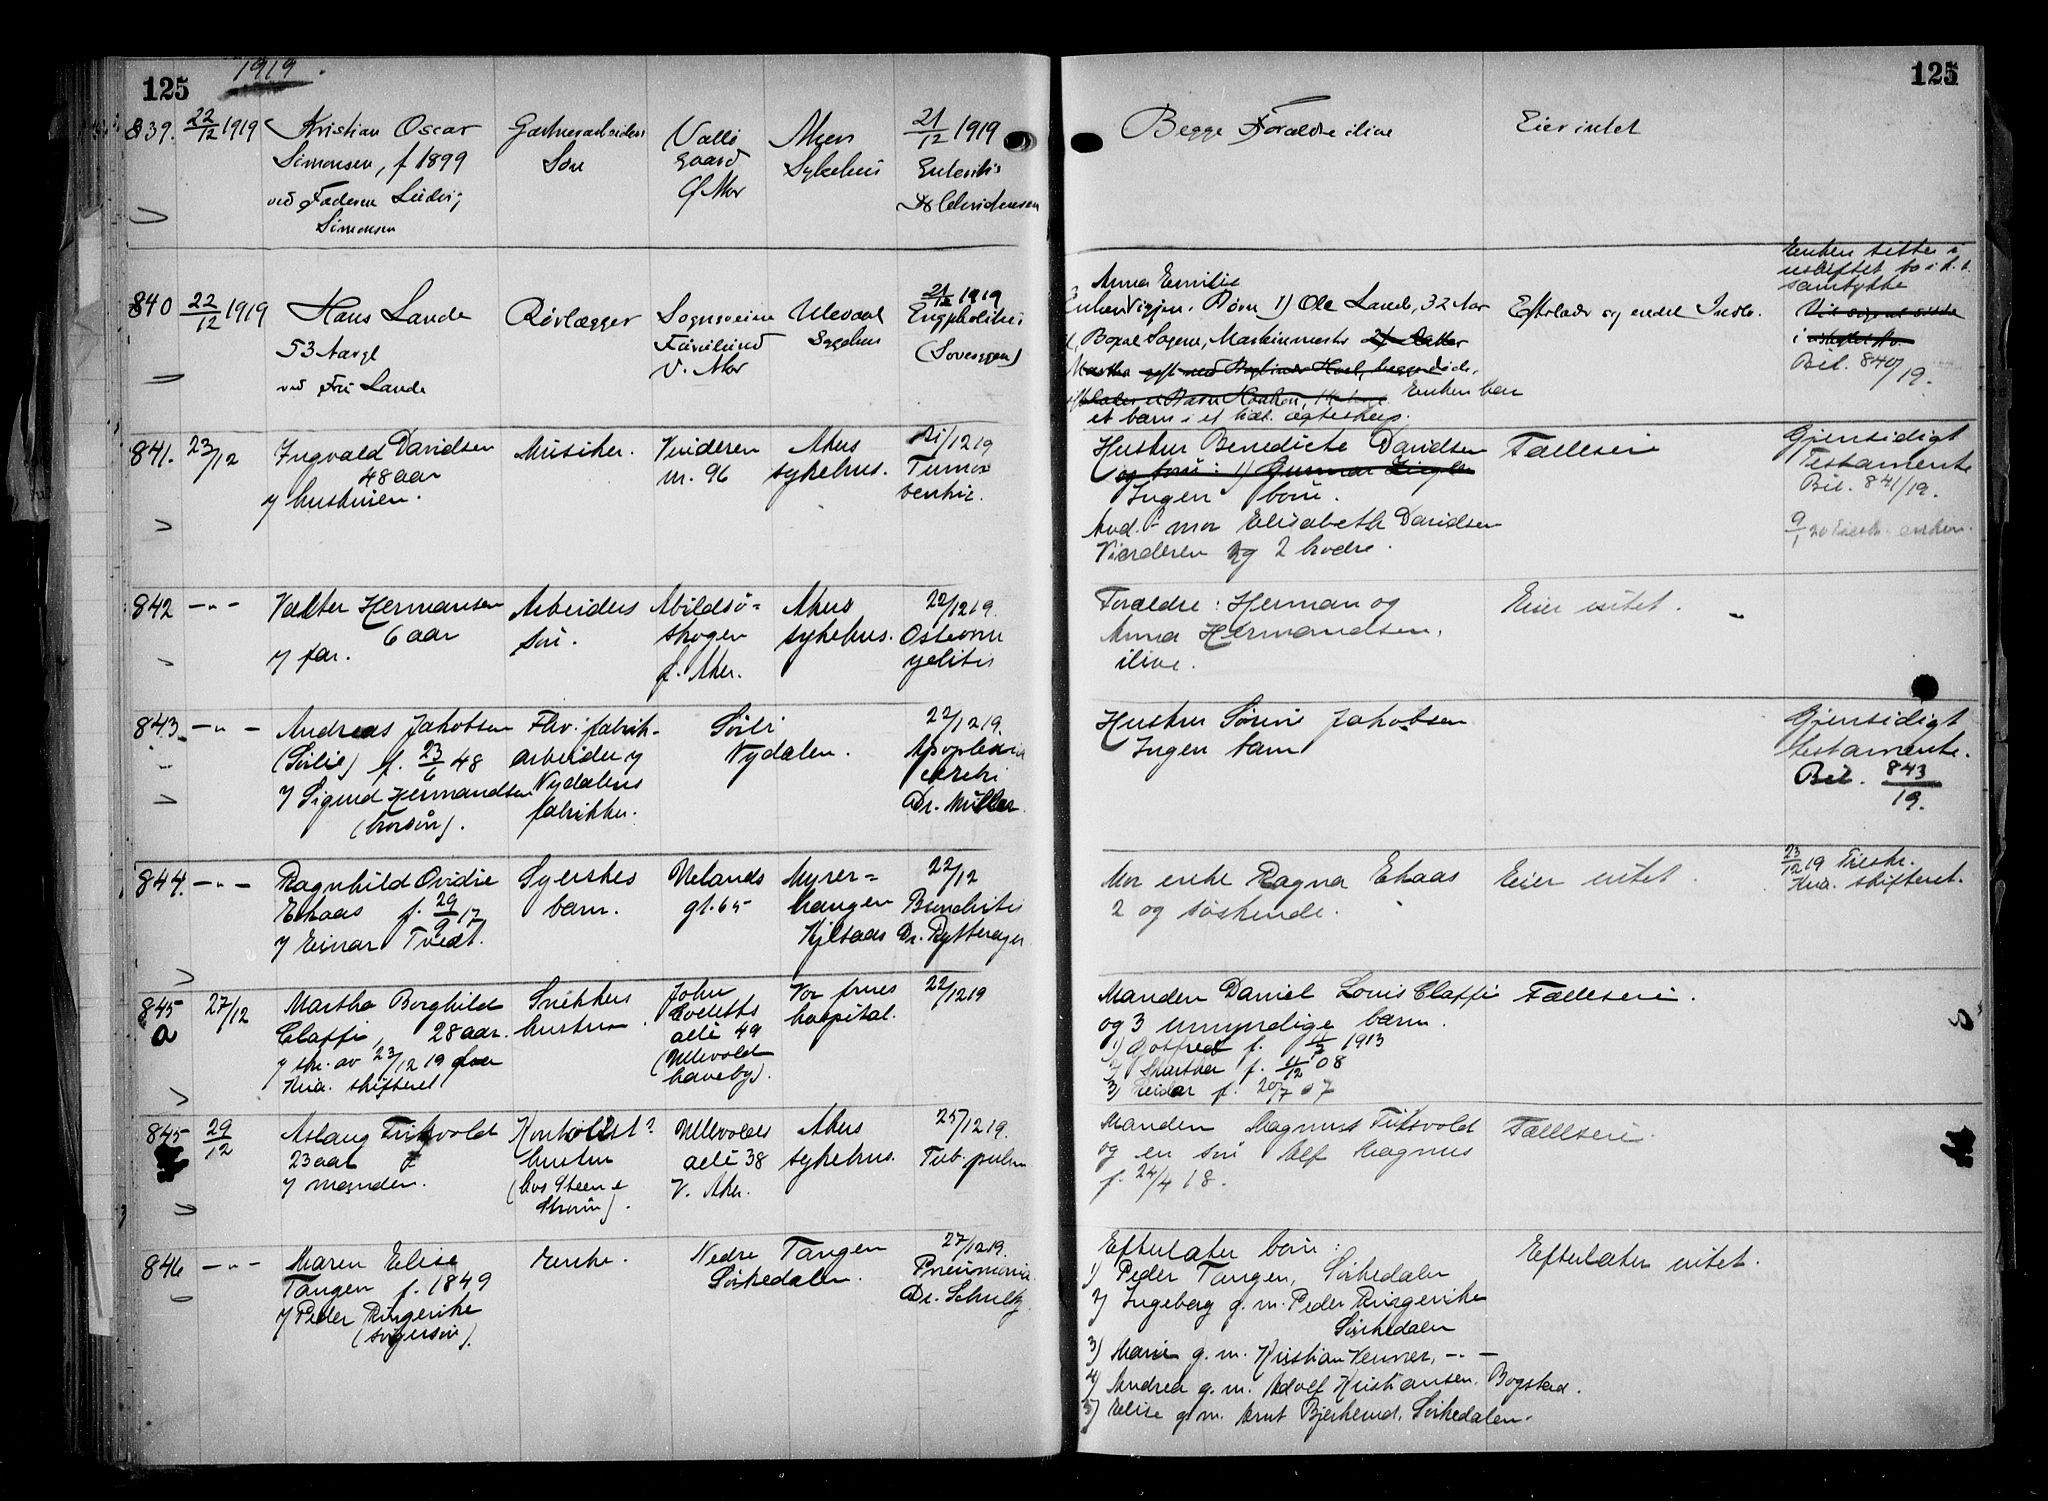 125
1919
125
839. 22/12 1919 Kristian Oscar
Simonsen, f 1899
ved Faderen Ludvig
Simonsen
Gartnerarbeiders
Søn
Vallø
gaard
Ø Aker
Akers
Sykehus
21/12 1919
Enteritis
Begge Forældre ilive
Eier intet
840 22/12 1919 Hans Lande
53 Aar gl
ved Fru Lande
Rørlægger
Sognsveien
V. Aker
Ulevaal
Sygehus
21/12 1919
Anna Emilie
Enken Børn 1) Ole Lande, 32 Aar
Enken har
et barn i et tidl. ægteskap.
Enken sitter i
uskiftet bo
samtykke
Bil. 840/19.
841. 23/12 Ingvald Davidsen
48 aar
v/ hustruen.
Musiker.
Vinderen
nr. 96
Akers
sykehus.
21/12 19
Tumor
ventric.
Hustru Benedicte Davidsen
Ingen børn.
Avd. mor Elisabeth Davidsen
Vinderen og 2 brødre.
Fælleseie
Gjensidigt
Testamente
Bil. 841/19.
842 -"- Valter Hermansen
6 aar
v/ far.
Arbeiders
søn.
Abildsø-
skogen
Ø. Aker.
Akers
sykehus.
22/12 19.
Osteom
yelitis
Forældre: Herman og
Anna Hermandsen,
ilive.
Eier intet.
843. -"- Andreas Jakobsen
(Sølie) f. 23/6 48
v/ Sigurd Hermandsen
(brorsøn).
Fhv. fabrik-
arbeider v/
Nydalens
fabrikker.
Nydalen.
22/12 19.
Apoplexia
cerebri
Dr. Müller
Hustru Sørine Jakobsen
Ingen barn
Gjensidigt
testamente.
Bil. 843/19.
844. -"- Ragnhild Ovidie
Ekaas f. 29/9 17
v/ Einar Tvedt.
Syerskes
barn.
Uelands
gt. 65
Myrer-
haugen
Kjelsaas
22/12
Bronchitis
Dr. Rytterager
Mor enke Ragna Ekaas
2 og søskende.
Eier intet.
23/12 19
Kra. skifteret.
845 a 27/12 Martha Borghild
Claffi, 28 aar.
v/ skr. av 23/12 19 fra
Kra. skifteret
Snekkers
hustru.
John
Colletts
allé 49
(Ullevold
haveby).
Vor frues
hospital.
22/12 19
Manden Daniel Louis Claffi
og 3 umyndige barn.
1) Gotfred f. 1913
2) f. 11/12 08
3) Reidar f. 20/7 07
Fælleseie.
845 29/12 Aslaug
23 aar
v/ manden.
hustru
(hos Steen &
Strøm).
Ullevolds
allé 38
V. Aker.
Akers
sykehus.
25/12 19.
Tub. pulm
Manden Magnus
og en søn Alf Magnus
f. 24/4 18.
Fælleseie.
846 -"- Maren Elise
Tangen f. 1849
v/ Peder Ringerike
(svigersøn).
Enke.
Nedre Tangen
Sørkedalen.
27/12 19.
Pneumonia
Dr. Schultz
Efterlater børn:
1) Peder Tangen, Sørkedalen
2) Ingeborg g. m. Peder Ringerike
Sørkedalen
3) Marie g. m. Kristian Venner, -"-
4) Andrea g. m. Adolf Kristiansen, Bogstad.
5) Elise g. m. Knut Bjerkerud, Sørkedalen.
Efterlater intet.